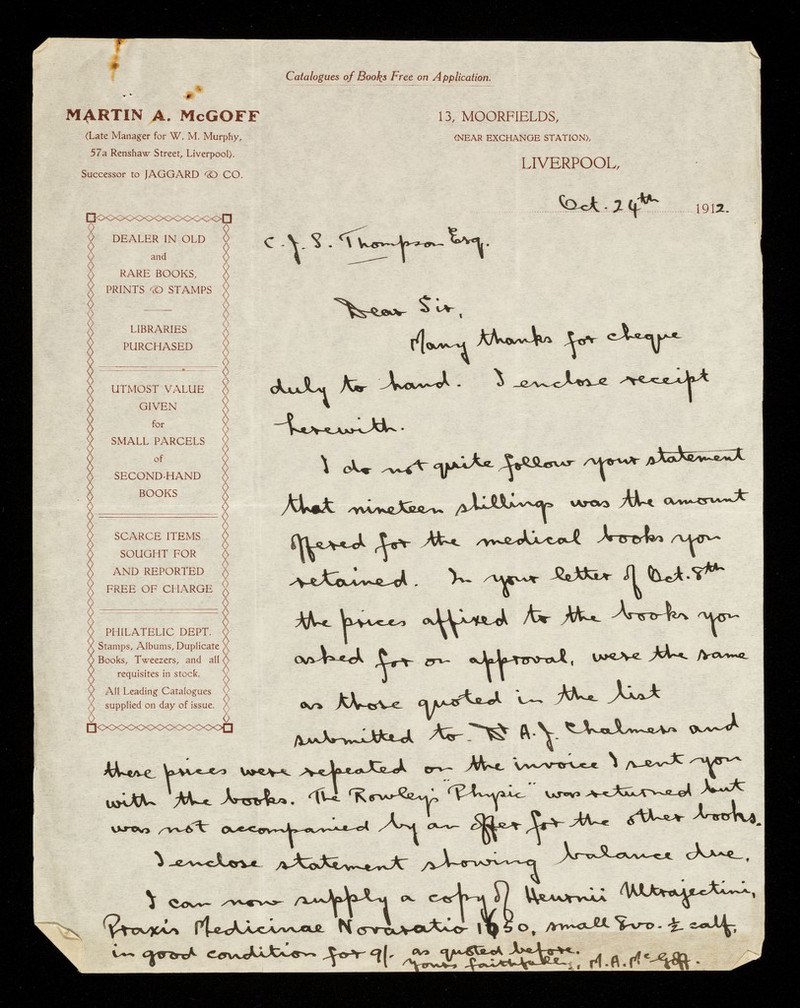 Catalogues of Books Free on Application.
MARTIN A. McGOFF
(Late Manager for W. M. Murphy,
57a Renshaw Street, Liverpool).
Successor to JAGGARD & CO.
13, MOORFIELDS,
(NEAR EXCHANGE STATION),
LIVERPOOL,
Oct. 24th 1912.
DEALER IN OLD
and
RARE BOOKS,
PRINTS & STAMPS
LIBRARIES
PURCHASED
UTMOST VALUE
GIVEN
for
SMALL PARCELS
of
SECOND-HAND
BOOKS
SCARCE ITEMS
SOUGHT FOR
AND REPORTED
FREE OF CHARGE
PHILATELIC DEPT.
Stamps, Albums, Duplicate
Books, Tweezers, and all
requisites in stock.
All Leading Catalogues
supplied on day of issue.
C. J. S. Thompson Esq.
Dear Sir,
Many thanks for cheque
duly to hand. I enclose receipt
herewith.
I do not quite follow your statement
that nineteen shillings was the amount
offered for the medical books you
retained. In your letter of Oct. 8th
the prices affixed to the books you
asked for on approval, were the same
as those quoted in the list
submitted to A. J. Chalmers and
these prices were repeated on the invoice I sent you
with the books. The Rowley's "Physic" was returned but
was not accompanied by an offer for the other books.
I enclose statement showing balance due.
I can now supply a copy of Heurnii Ultrajectini,
Praxis Medicinae Novaratio 1650, small 8vo. ½ calf,
in good condition for 9/- as quoted before.
Yours faithfully, M. A. McGoff.